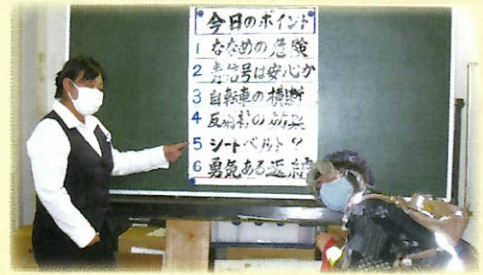 今日のポイント
1 ななめの危険
2 青信号は安心か
3 自転車の横断
4 反射材の効果
5 シートベルト?
6 勇気ある返納